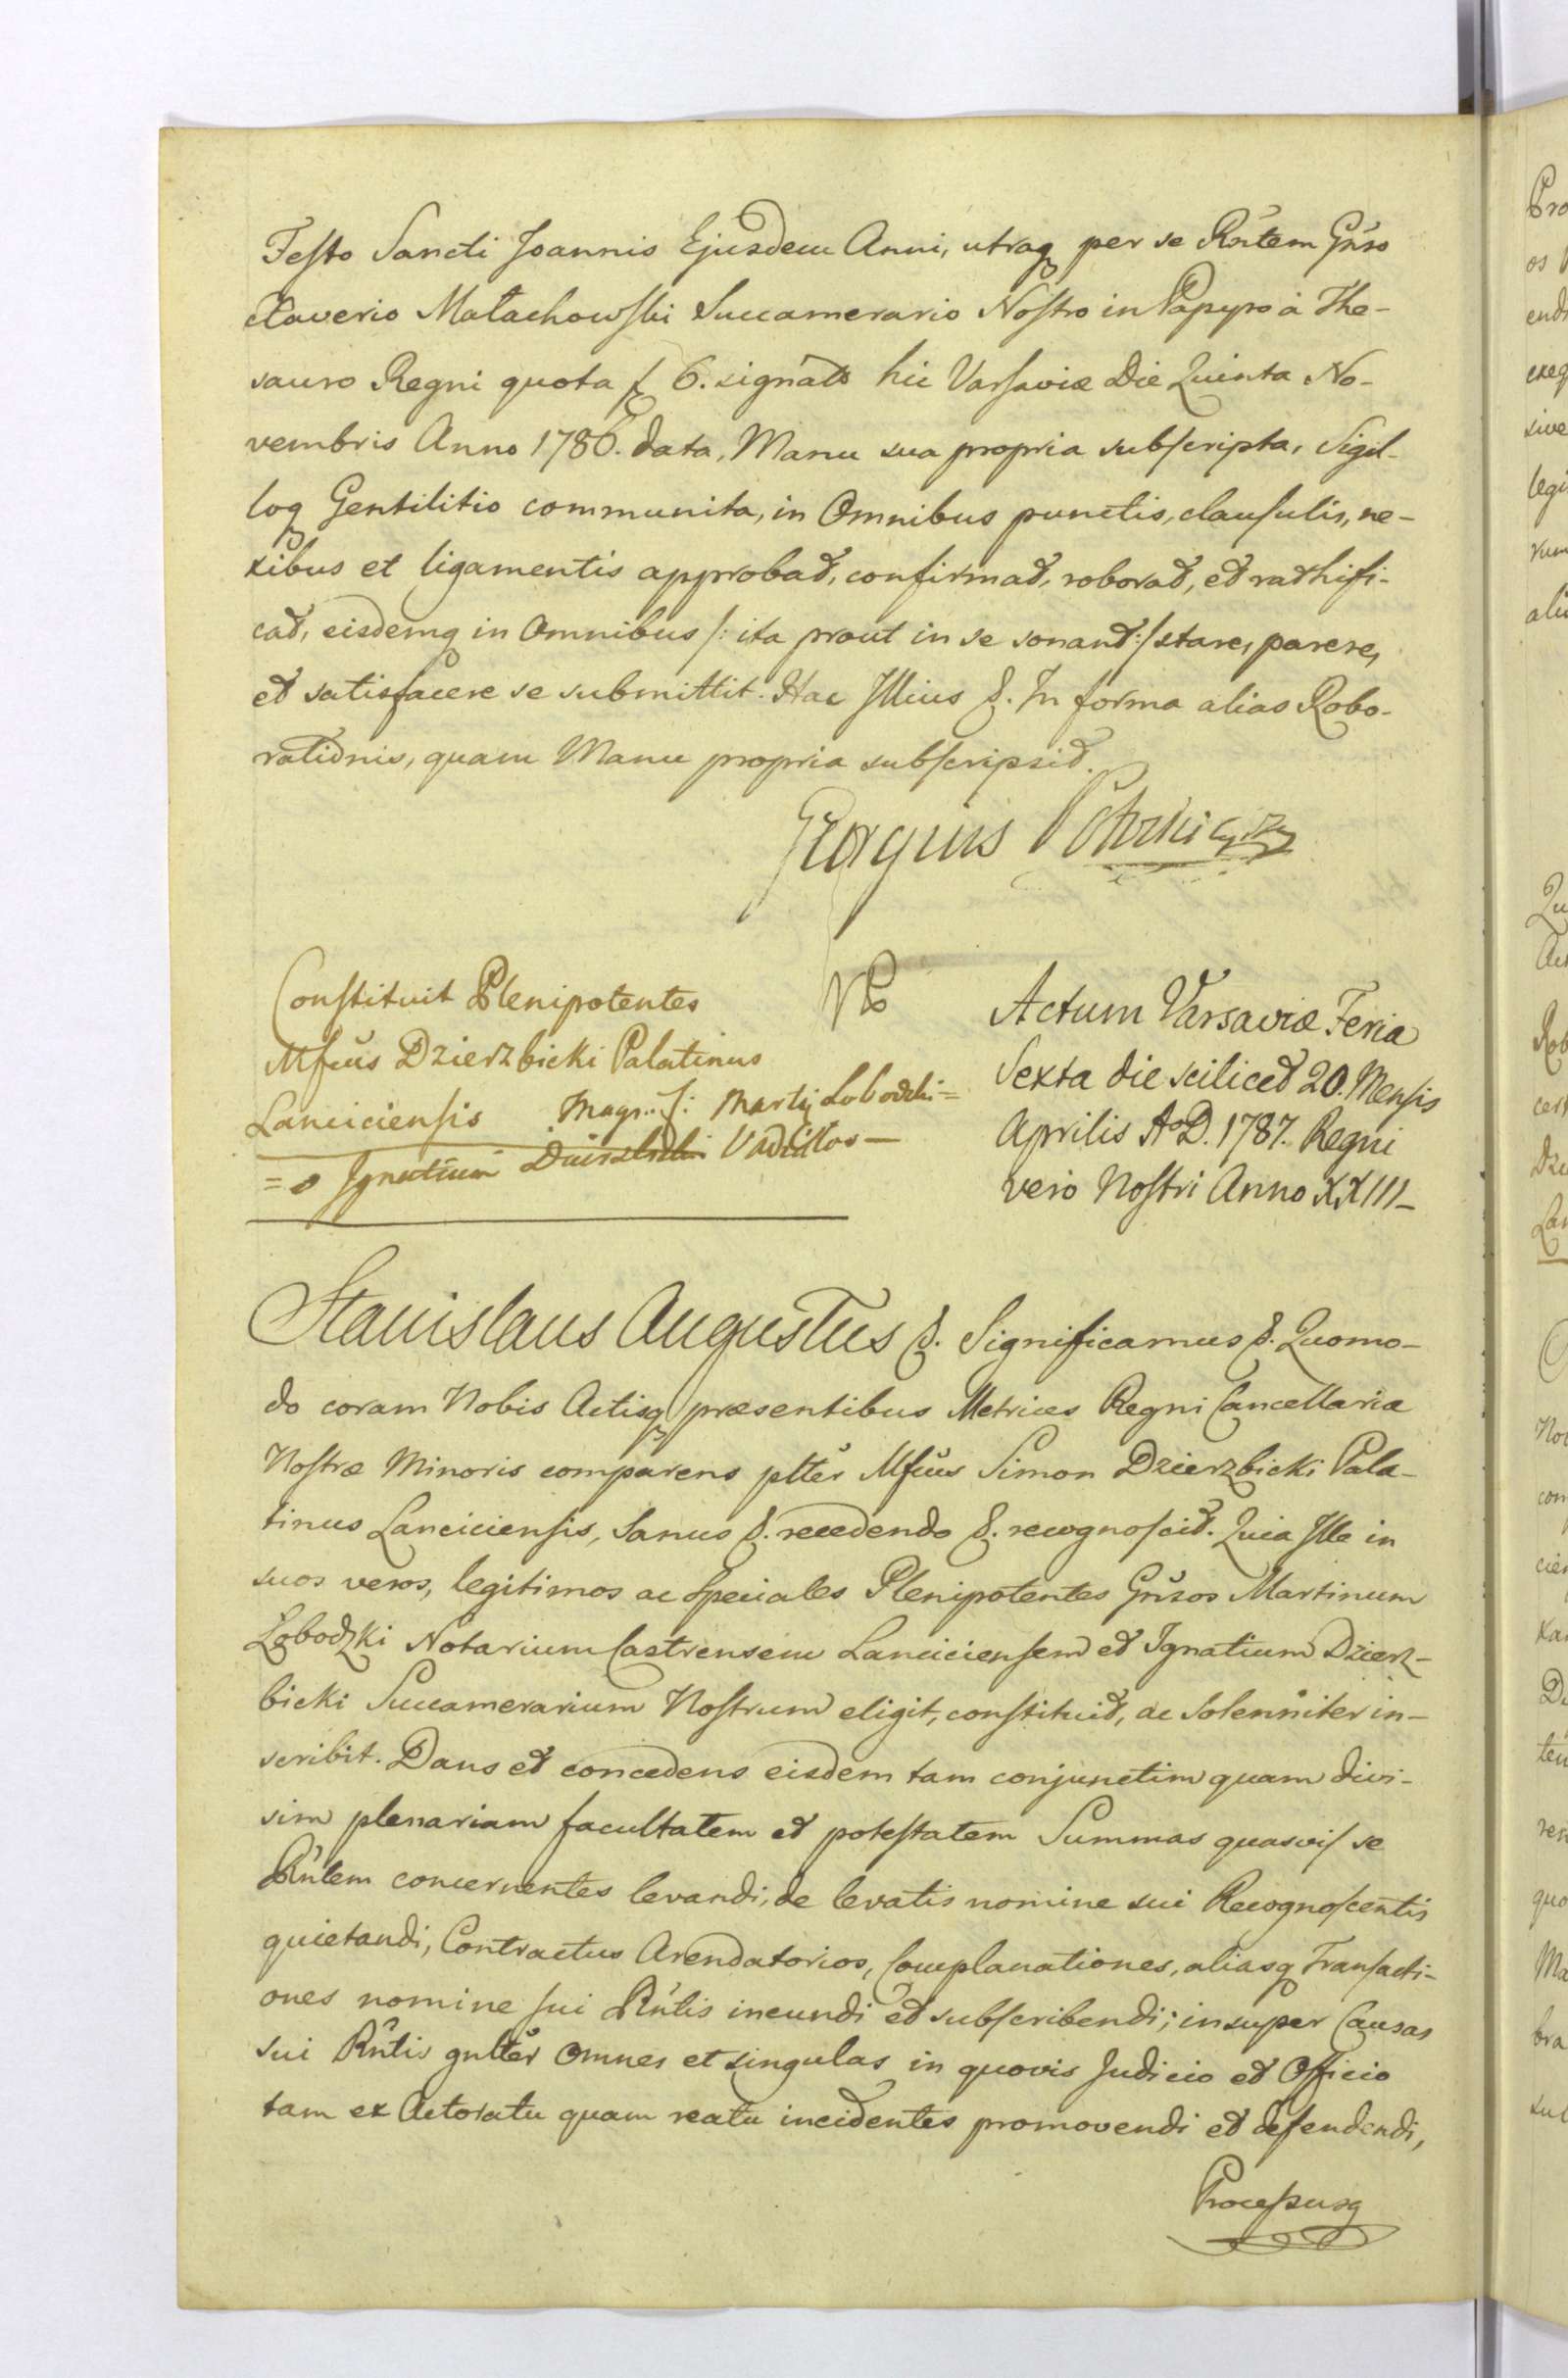 Festo Sancti Joannis Ejusdem Anni, utraq per se Rñtem Gñso
Xaverio Małachowski Succamerario Nostro in Papyro à The-
sauro Regni quota f 6. signato hic Varsaviæ Die Quinta No-
vembris Anno 1786. data, Manu sua propria subscripta, Sigil-
loq Gentilitio communita, in Omnibus punctis, clausulis, ne-
xibus et ligamentis approbat, confirmat, roborat, et rathifi-
cat, eisdemq in Omnibus /: ita prout in se sonant :/ stare, parere,
et satisfacere se submittit. Hac Illius &. In forma alias Robo-
rationis, quam Manu propria subscripsit.
Georgius
Constituit Plenipotentes
Mfcus Dzierzbicki Palatinus
Lanciciensis Magr.. Lobodzki =
= o Ignatium
Actum Varsaviæ Feria
Sexta die scilicet 20. Mensis
Aprilis A°D. 1787. Regni
vero Nostri Anno XXIII_
Stanislaus Augustus &. Significamus &. Quomo-
do coram Nobis Actisq præsentibus Metrices Regni Cancellariæ
Nostræ Minoris comparens pltěr Mfcus Simon Dzierzbicki Pala-
tinus Lanciciensis, Sanus &. recedendo &. recognoscit. Quia Ille in
suos veros, legitimos ac speciales Plenipotentes Gñsos Martinum
Lobodzki Notarium Castrensem Lanciciensem et Ignatium Dzierz-
bicki Succamerarium Nostrum eligit, constituit, ac Solenniter in-
scribit. Dans et concedens eisdem tam conjunctim quam divi-
sim plenariam facultatem et potestatem Summas quasvis se
Rñtem concernentes levandi, de levatis nomine sui Recognoscentis
quietandi, Contractus Arendatorios, Complanationes, aliasq Transacti-
ones nomine sui Rñtis ineundi et subscribendi; insuper Causas
sui Rñtis gnltěr Omnes et singulas in quovis Judicio et Officio
tam ex Actoratu quam reatu incidentes promovendi et defendendi,
Processusq